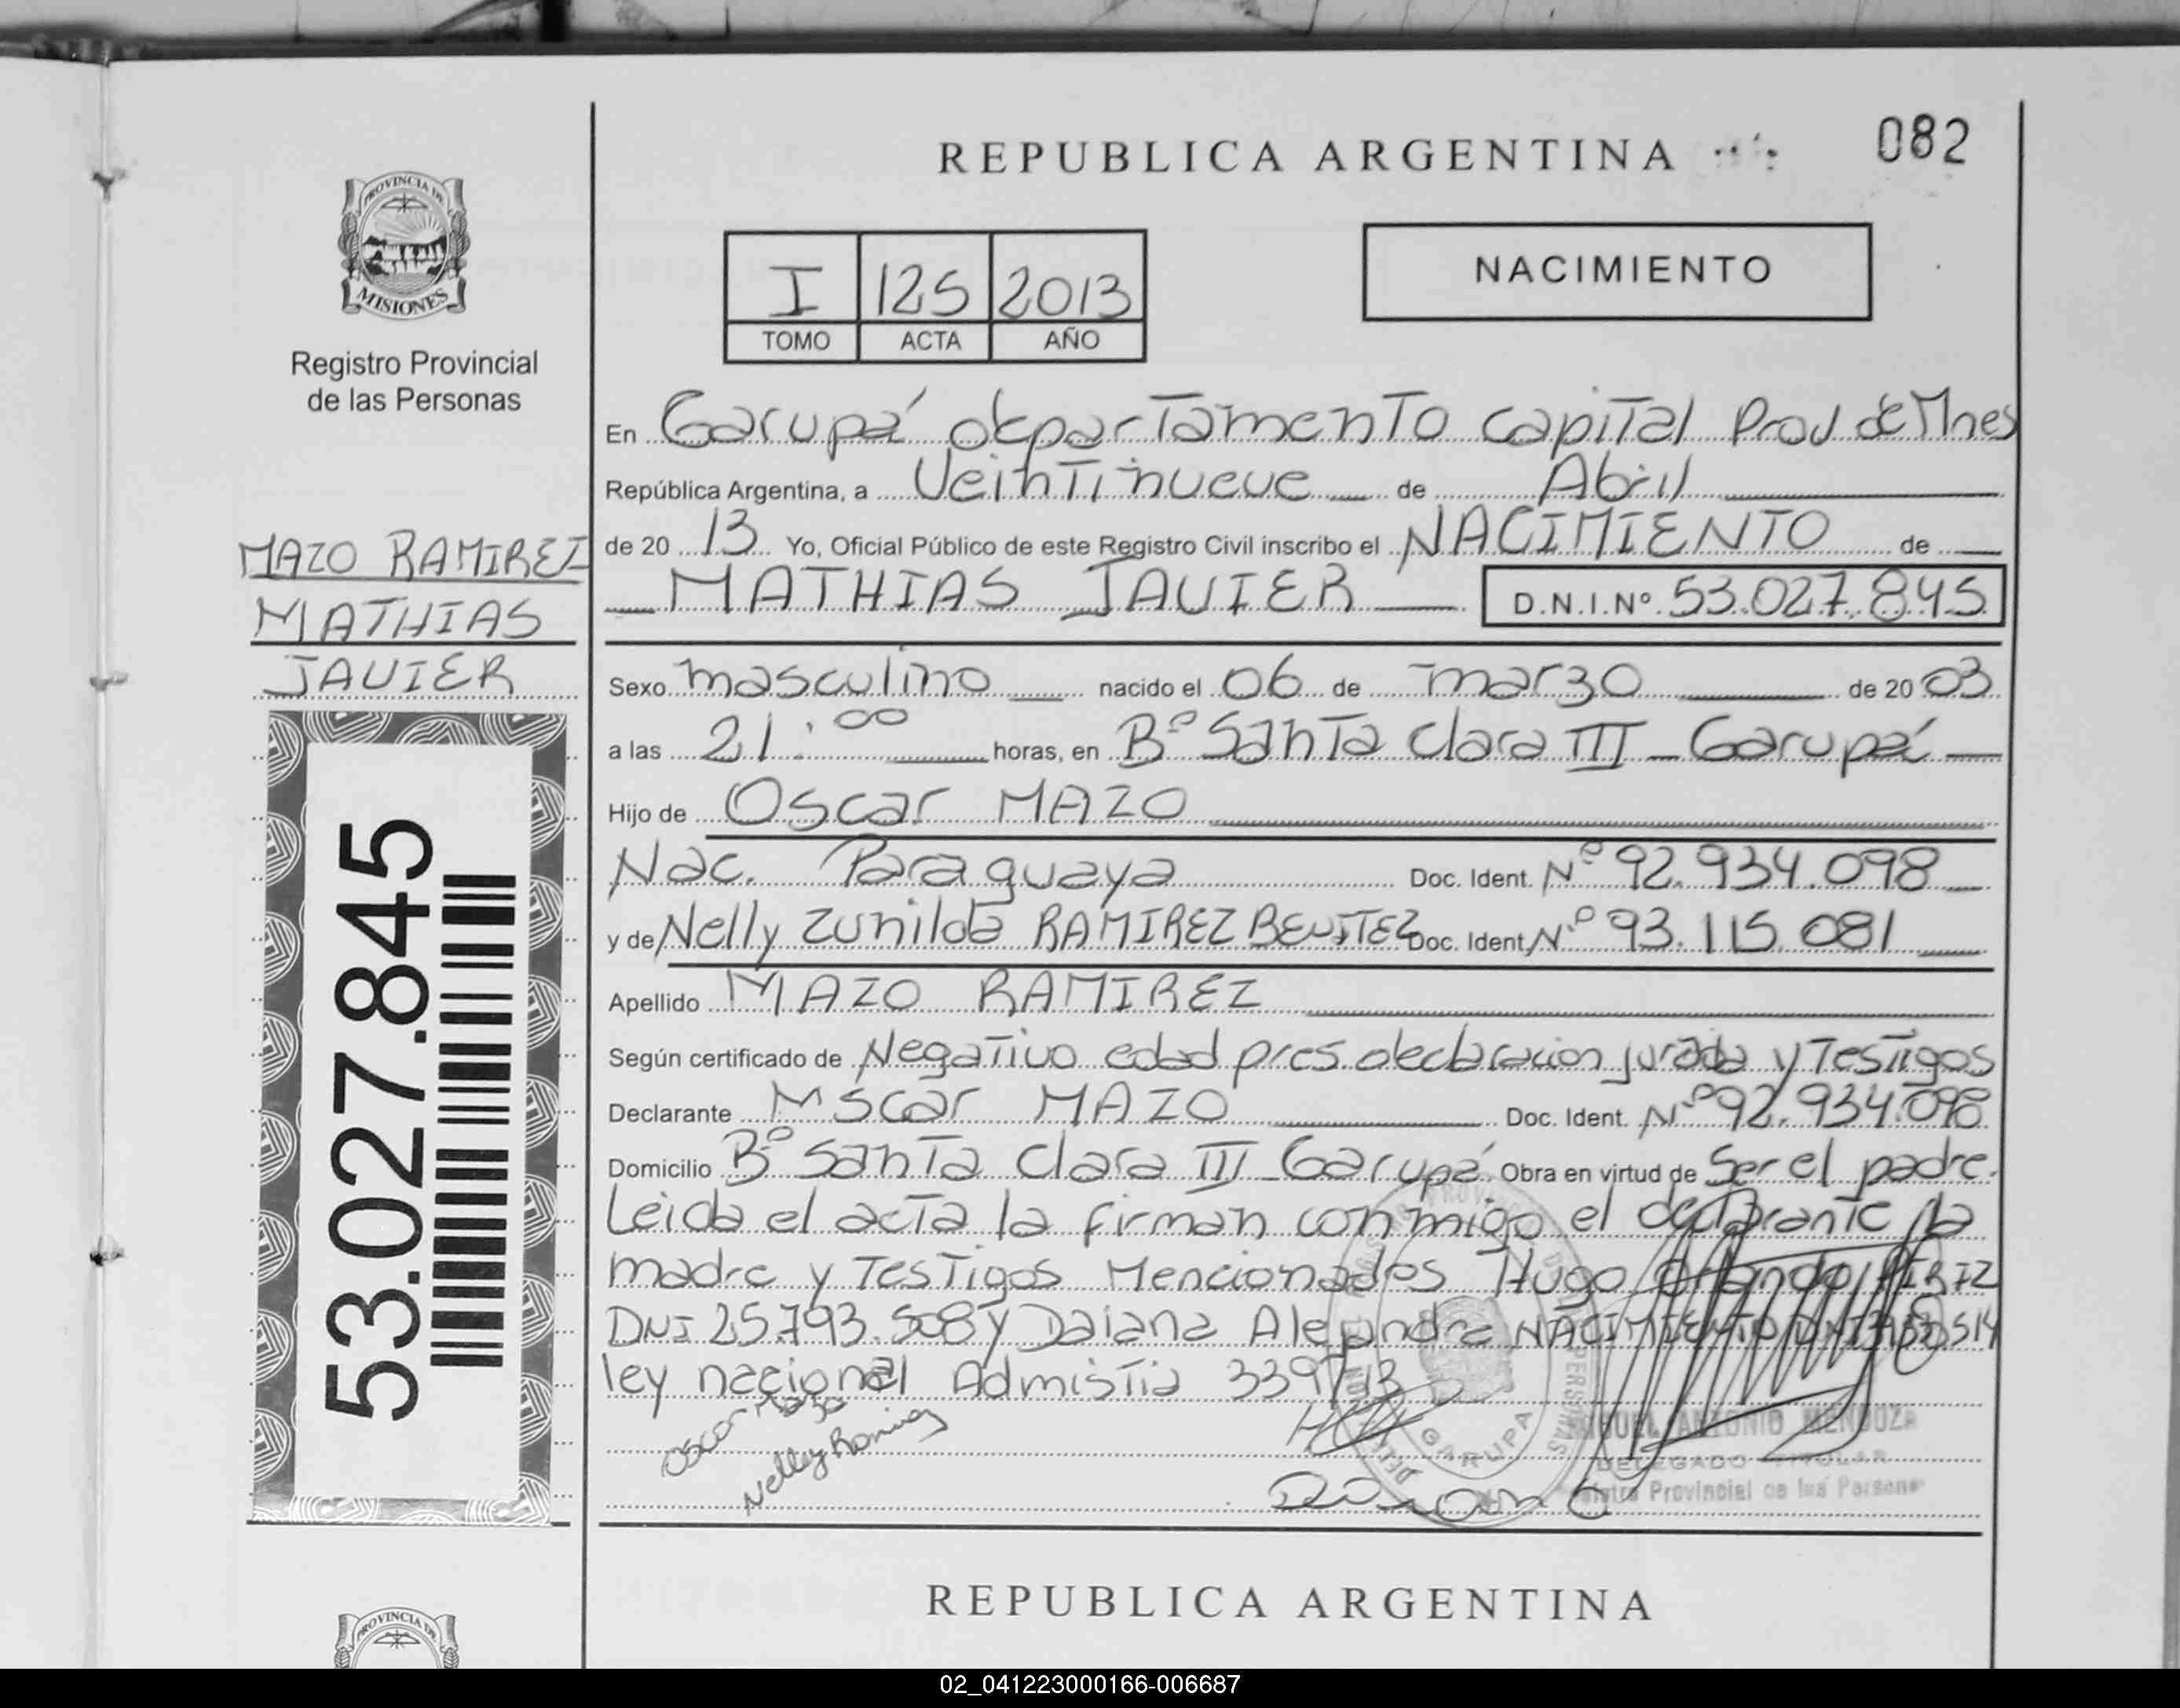 REPUBLICA ARGENTINA
082
PROVINCIA DE
MISIONES
Registro Provincial
de las Personas
I 125 2013
TOMO ACTA AÑO
NACIMIENTO
En Garupá departamento capital Prov de Mnes
República Argentina, a Veintinueve de Abril
de 20 13 Yo, Oficial Público de este Registro Civil inscribo el NACIMIENTO de
MATHIAS JAVIER D.N.I.Nº 53.027.845
MAZO RAMIREZ
MATHIAS
JAVIER
53.027.845
Sexo masculino nacido el 06 de marzo de 20 03
a las 21:00 horas, en Bº Santa Clara III - Garupá
Hijo de Oscar MAZO
Nac. Paraguaya Doc. Ident. Nº 92.934.098
y de Nelly Zunilda RAMIREZ BENITEZ Doc. Ident. Nº 93.115.081
Apellido MAZO RAMIREZ
Según certificado de Negativo edad pres. declaracion jurada y Testigos
Declarante Oscar MAZO Doc. Ident. Nº 92.934.098
Domicilio Bº Santa Clara III - Garupá Obra en virtud de Ser el padre.
Leida el acta la firman conmigo el declarante la
madre y Testigos Mencionados Hugo Orlando
DNI 25.793.508 y Daiana Alejandra NACIMIENTO DNI
ley nacional Admistia 339/13
Oscar Mazo
Nelly Ramirez
Daiana
GARUPA
MIGUEL ANTONIO MENDOZA
DELEGADO TITULAR
Registro Provincial de las Personas
REPUBLICA ARGENTINA
PROVINCIA DE
02_041223000166-006687